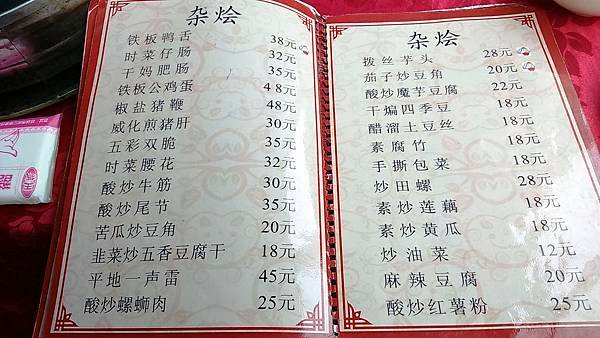 杂烩
铁板鸭舌 38元
时菜仔肠 32元
干妈肥肠 35元
铁板公鸡蛋 48元
椒盐猪鞭 48元
威化煎猪肝 30元
五彩双脆 35元
时菜腰花 32元
酸炒牛筋 30元
酸炒尾节 35元
苦瓜炒豆角 20元
韭菜炒五香豆腐干 18元
平地一声雷 45元
酸炒螺蛳肉 25元
杂烩
拨丝芋头 28元
茄子炒豆角 20元
酸炒魔芋豆腐 22元
干煸四季豆 18元
醋溜土豆丝 18元
素腐竹 18元
手撕包菜 18元
炒田螺 28元
素炒莲藕 18元
素炒黄瓜 18元
炒油菜 12元
麻辣豆腐 20元
酸炒红薯粉 25元